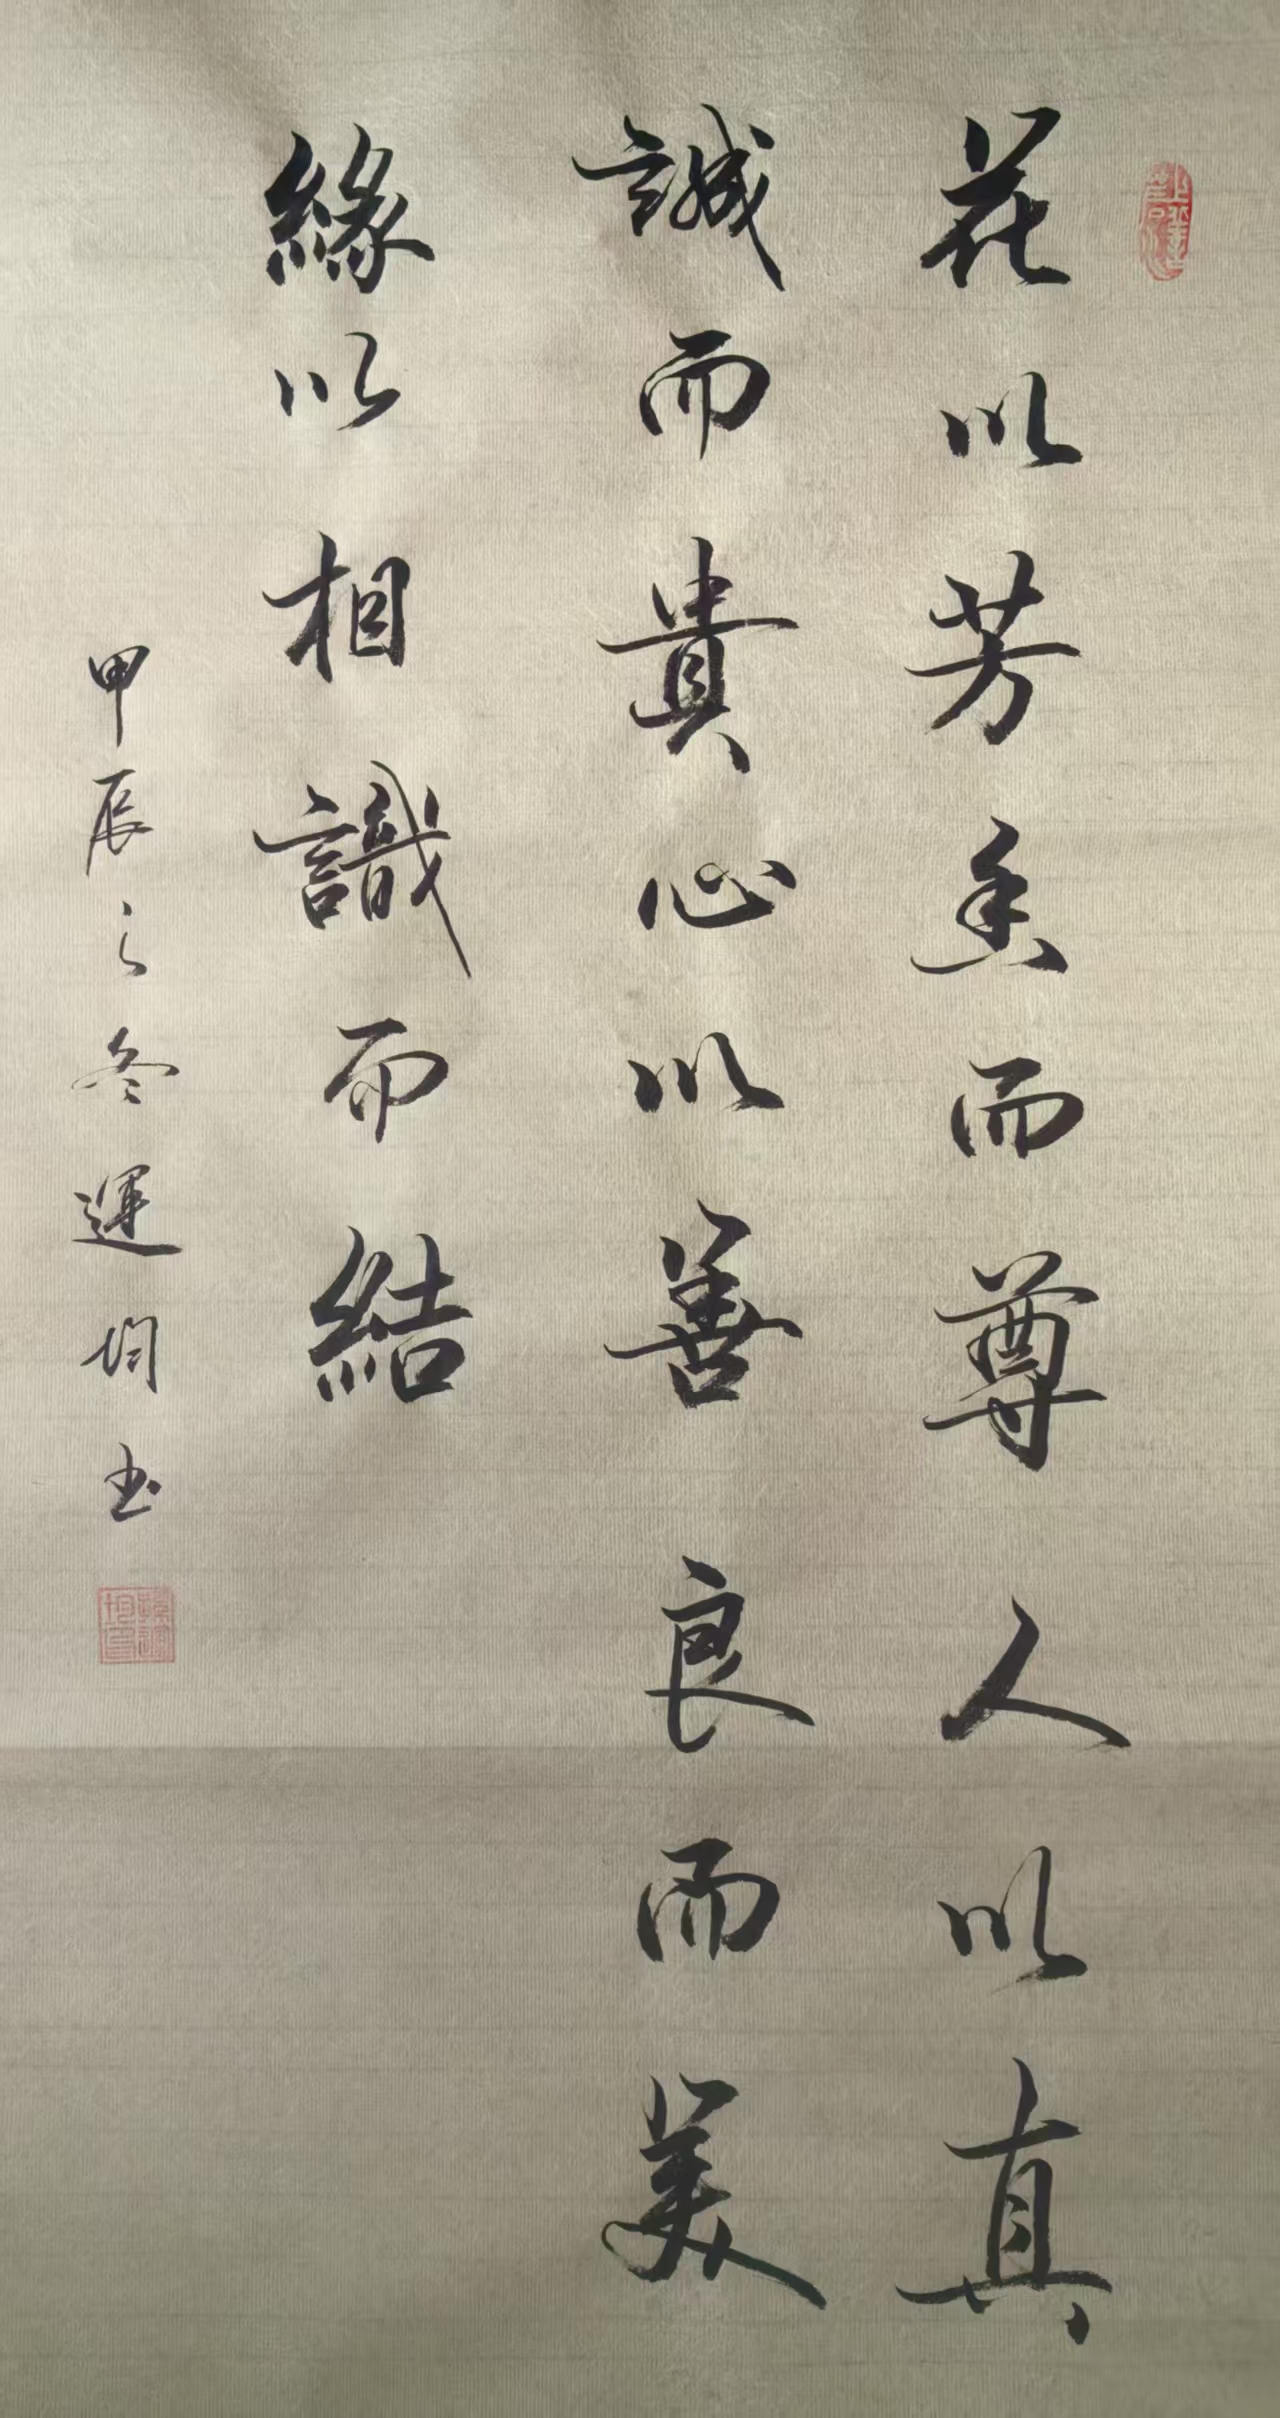 花以芳香而尊人以真
誠而貴心以善良而美
緣以相識而結
甲辰之冬運均书